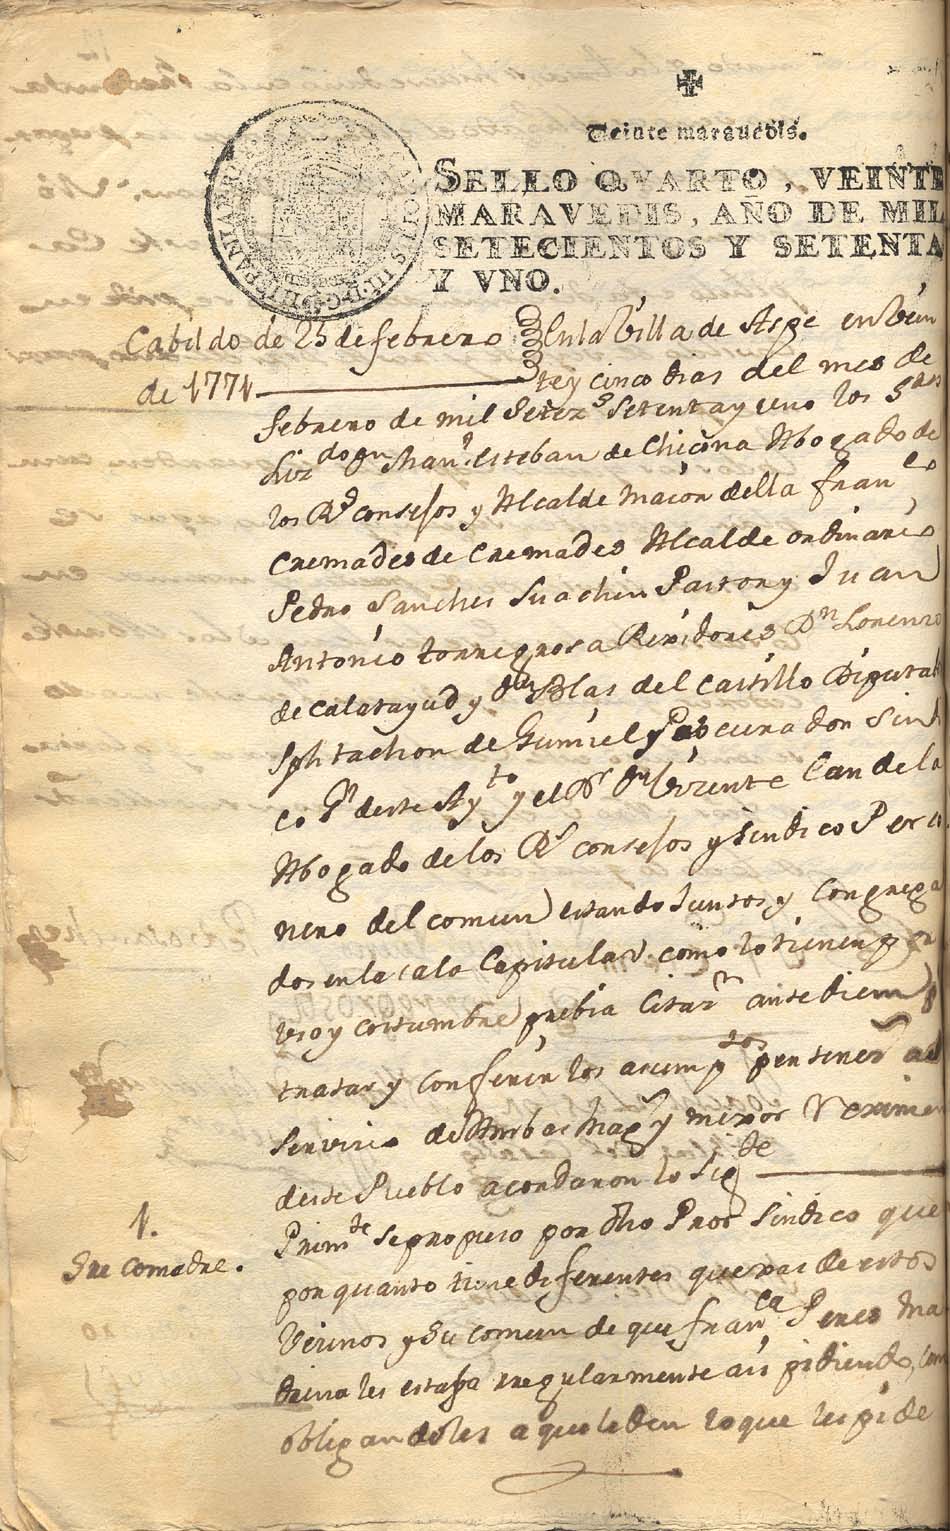 Veinte maravedis.
SELLO QVARTO, VEINTE
MARAVEDIS, AÑO DE MIL
SETECIENTOS Y SETENTA
Y VNO.
Cabildo de 25 de febrero
de 1771
En la Villa de Aspe en vein
te y cinco dias del mes de
febrero de mil Setezs Setenta y uno los Sres
Lizdo Dn Manl Esteban de Chicona Abogado de
los Rs consejos y Alcalde maior de ella franco
Cremades de Cremades Alcalde ordinario
Pedro Sanches Juachin Pastor y Juan
Antonio torregrosa Rexidores Dn Lorenzo
de Calatayud y Dn Blas del Castillo Diputad
Jph tachon de Gumiel Procurador Sindi
co Gl deste Ayto y el Dr Dn Vizente Candela
Abogado de los Rs consejos y Sindico Perso
nero del comun estando Juntos y Congrega
dos en la sala Capitular como lo tienen por
uso y costumbre prebia Citazn antediem p
tratar y Conferir los asumptos pertenes al
servicio de Ambas Mags y mexor Reximen
deste Pueblo acordaron lo Sigte
1.
Sre Comadre.
Primte se propuso por dho Pror Sindico que
por quanto tiene diferentes quexas de estos
Vecinos y Su comun de que franca Peres Ma
drina les estafa irregularmente asi pidiendo, como
obligandoles a que le den lo que les pide